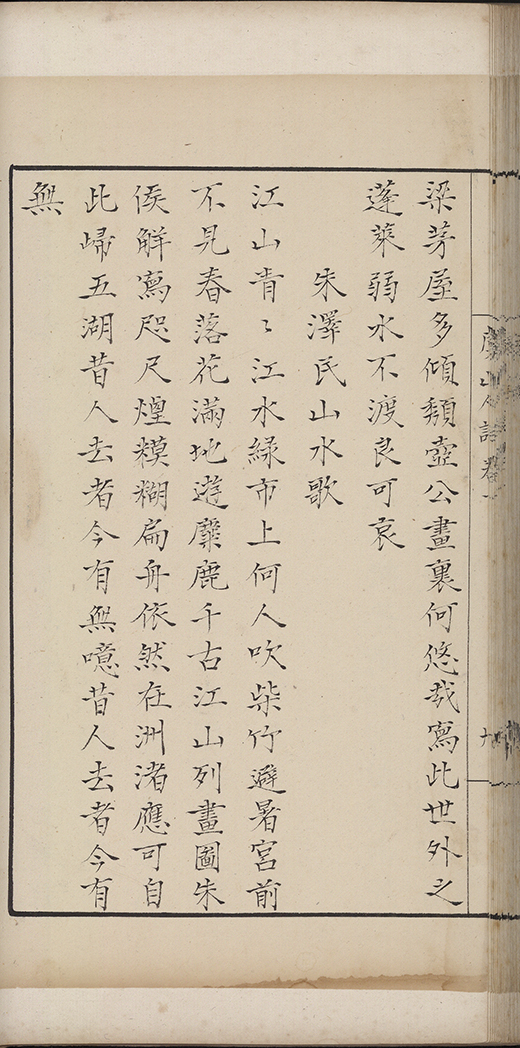 梁茅屋多傾頽壺公畫裏何悠哉寫此世外之
蓬萊弱水不渡良可哀
朱澤民山水歌
江山青〻江水緑市上何人吹柴竹避暑宮前
不見春落花滿地遊麋鹿千古江山列畫圖朱
侯解寫咫尺煌糢糊扁舟依然在洲渚應可自
此歸五湖昔人去者今有無噫昔人去者今有
無
山人詩卷一
九